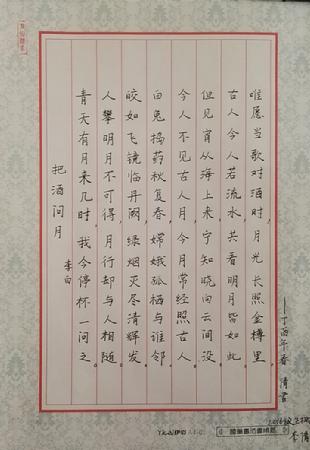 把酒问月
李白
青天有月来几时,我今停杯一问之。
人攀明月不可得,月行却与人相随
皎如飞镜临丹阙,绿烟灭尽清辉发
白兔捣药秋复春,嫦娥孤栖与谁邻
今人不见古人月,今月常经照古人。
但见宵从海上来,宁知晓向云间没
古人今人若流水,共看明月皆如此
唯愿当歌对酒时,月光长照金樽里。
——丁酉年春 清书
2016级
李清